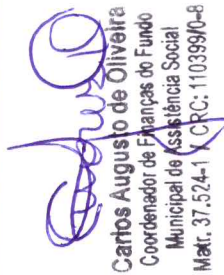 Carlos Augusto de Oliveira
Coordenador de Finanças do Fundo
Municipal de Assistência Social
Matr. 37.524-1 / CRC: 110399/0-8